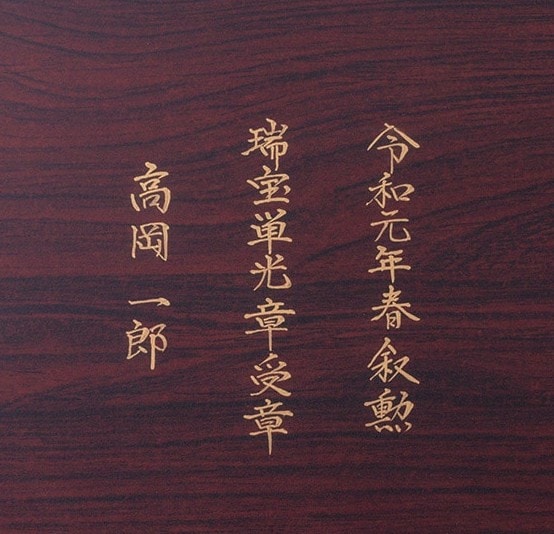 令和元年春叙勲
瑞宝単光章受章
高岡一郎